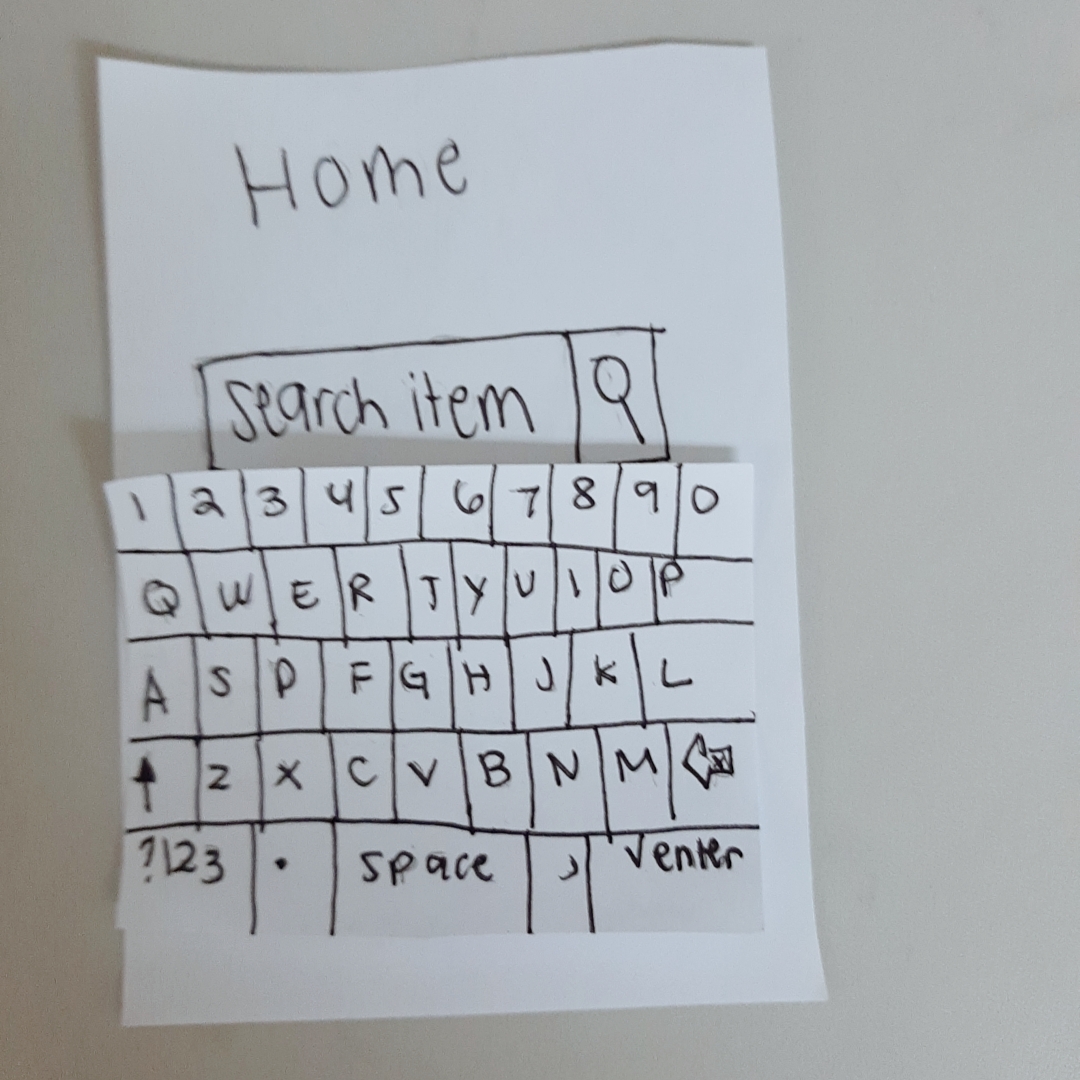 Home
search item
1 2 3 4 5 6 7 8 9 0
Q W E R T Y U I O P
A S D F G H J K L
Z X C V B N M
?123 . space , enter